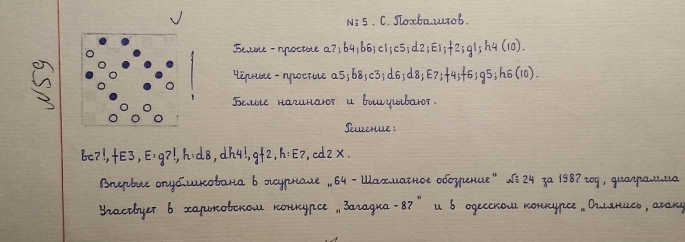 № 5. С. Похвалитов.
Белые - простые a7; b4; b6; c1; c5; d2; E1; f2; g1; h4 (10).
Чёрные - простые a5; b8; c3; d6; d8; E7; f4; f6; g5; h6 (10).
Белые начинают и выигрывают.
Решение:
№59
bc7!, fE3, E:g7!, h:d8, dh4!, gf2, h:E7, cd2 X.
Впервые опубликована в журнале „64 - Шахматное обозрение" № 24 за 1987 год, диаграмма
Участвует в харьковском конкурсе „Загадка - 87" и в одесском конкурсе „Оглянись, атаку